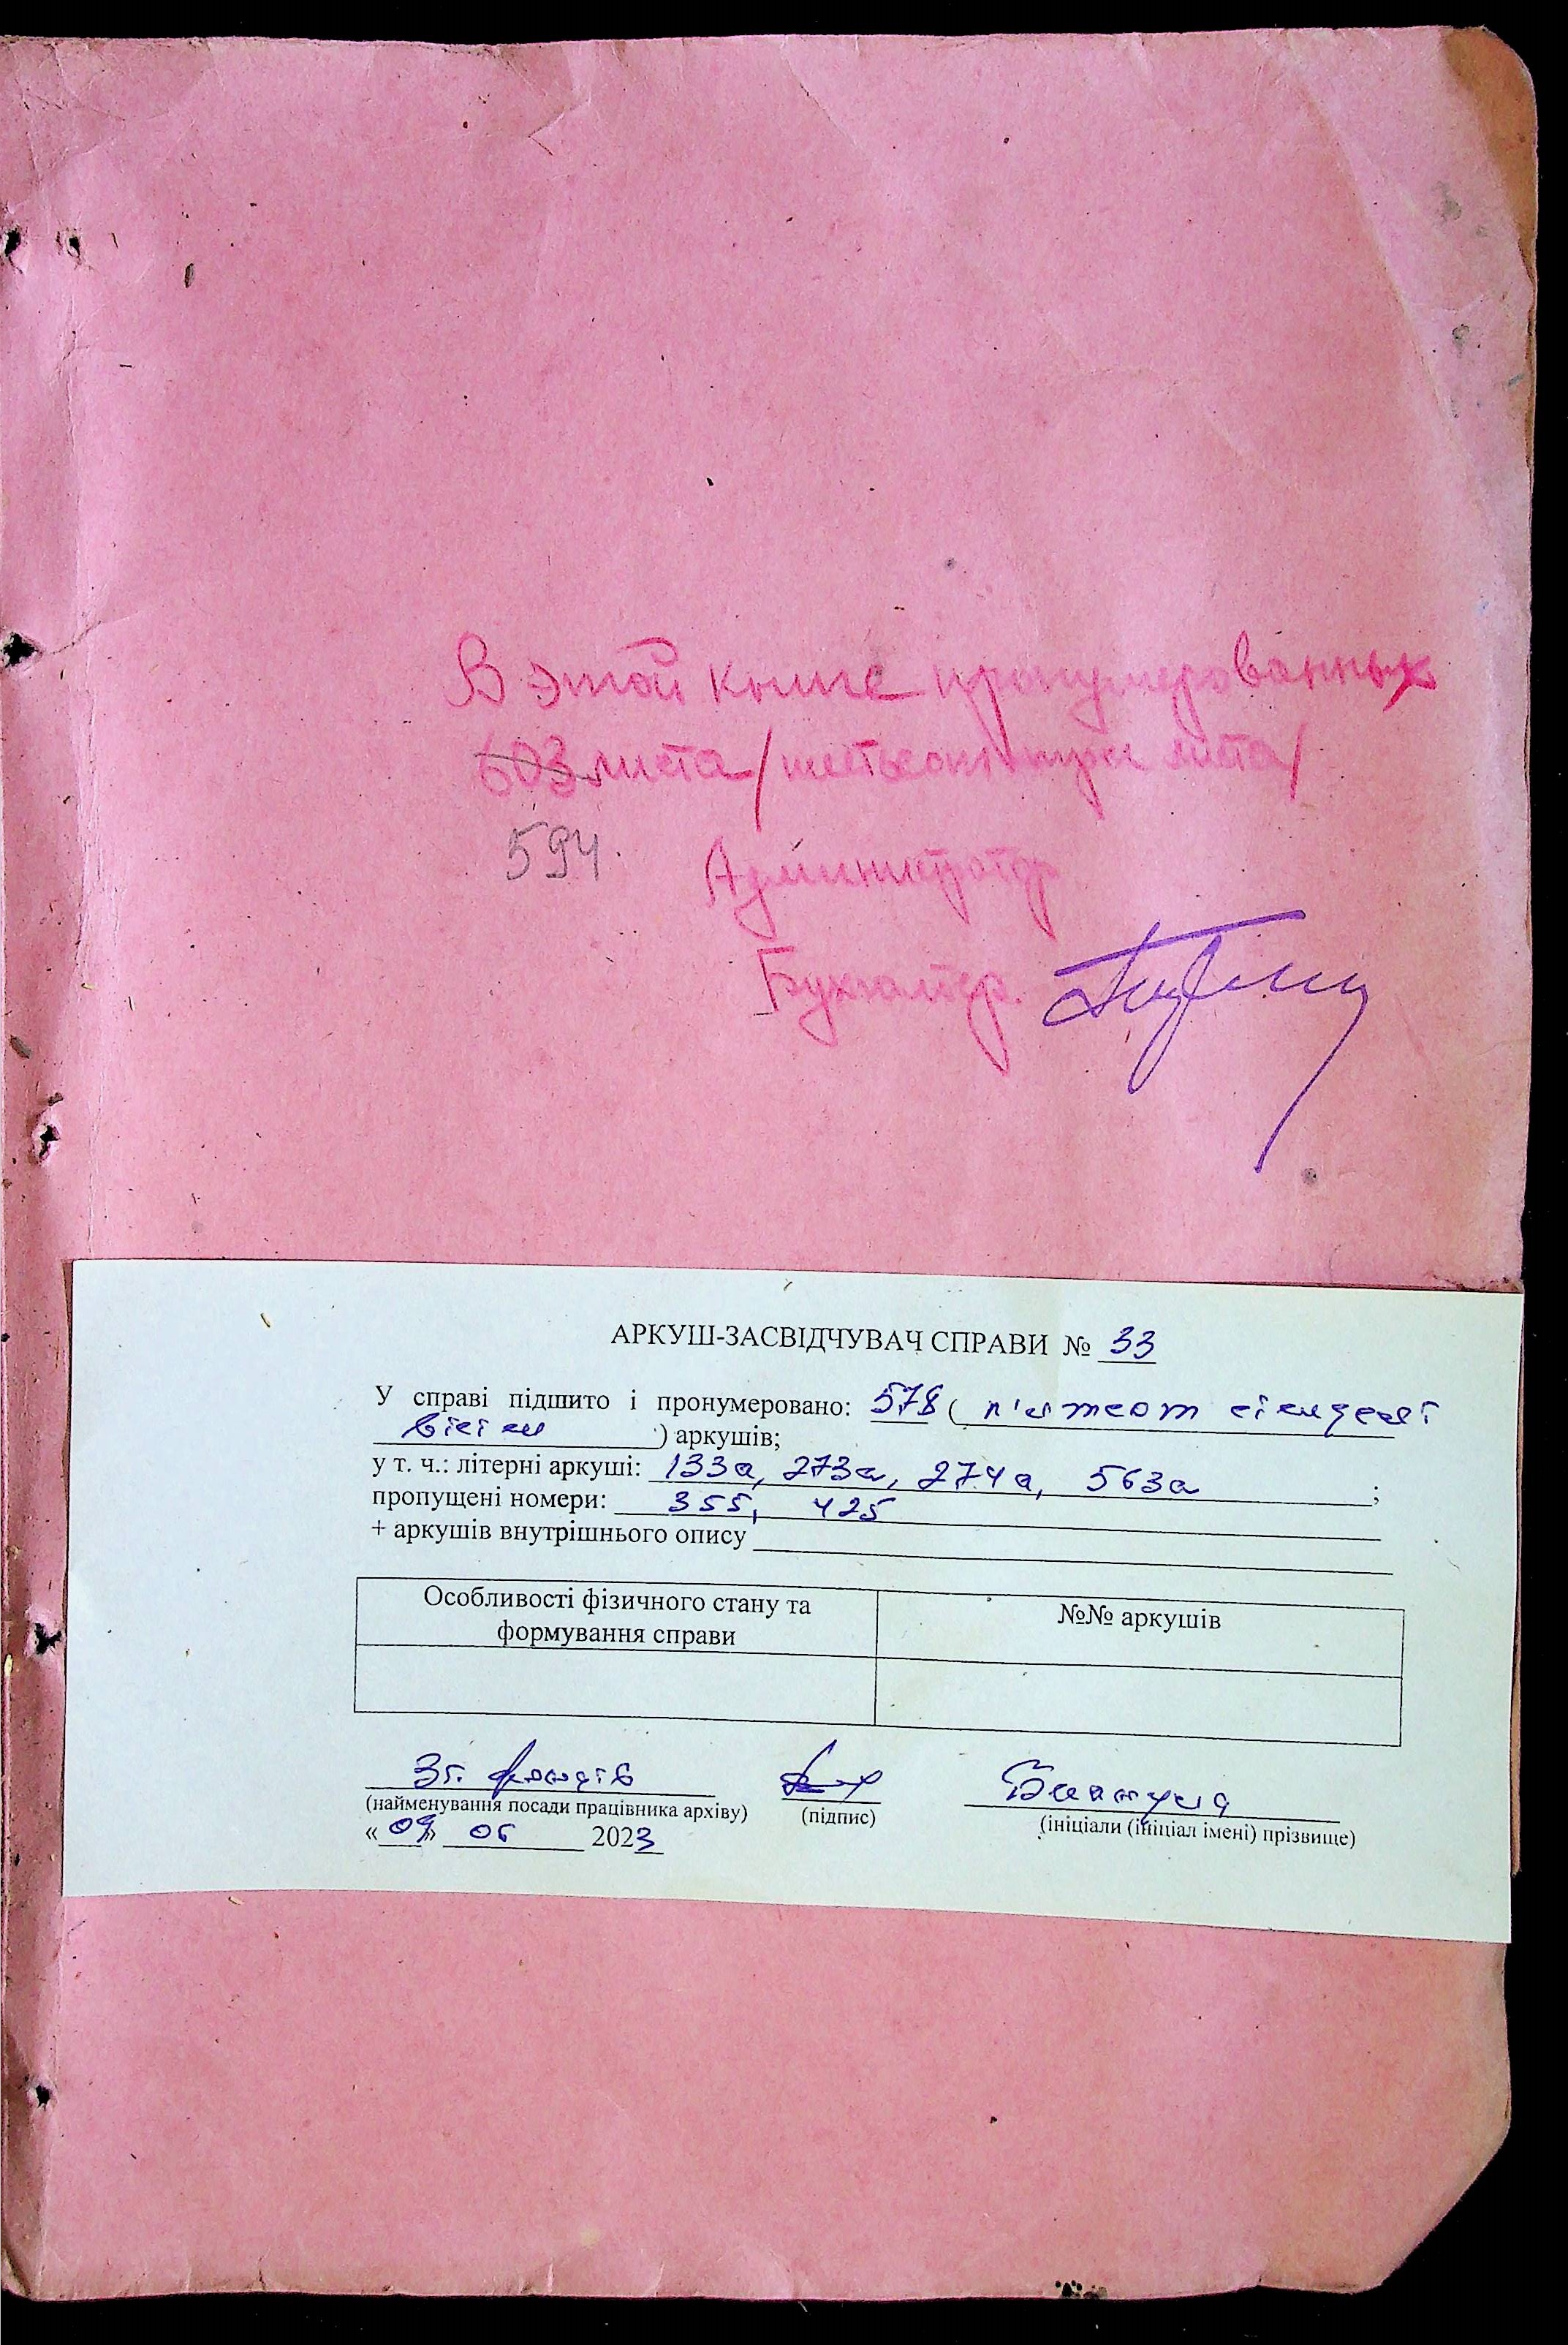 В этой книге пронумерованных
603 листа / шестьсот три листа /
594.
Администратор
Бухгалтер.
АРКУШ-ЗАСВІДЧУВАЧ СПРАВИ № 33
У справі підшито і пронумеровано: 578 ( п'ятсот сімдесят
вісім ) аркушів;
у т. ч.: літерні аркуші: 133а, 273а, 274а, 563а ;
пропущені номери: 355, 425
+ аркушів внутрішнього опису
Особливості фізичного стану та
формування справи
№№ аркушів
Зб. фондів
(найменування посади працівника архіву) (підпис) (ініціали (ініціал імені) прізвище)
« 09 » 06 2023